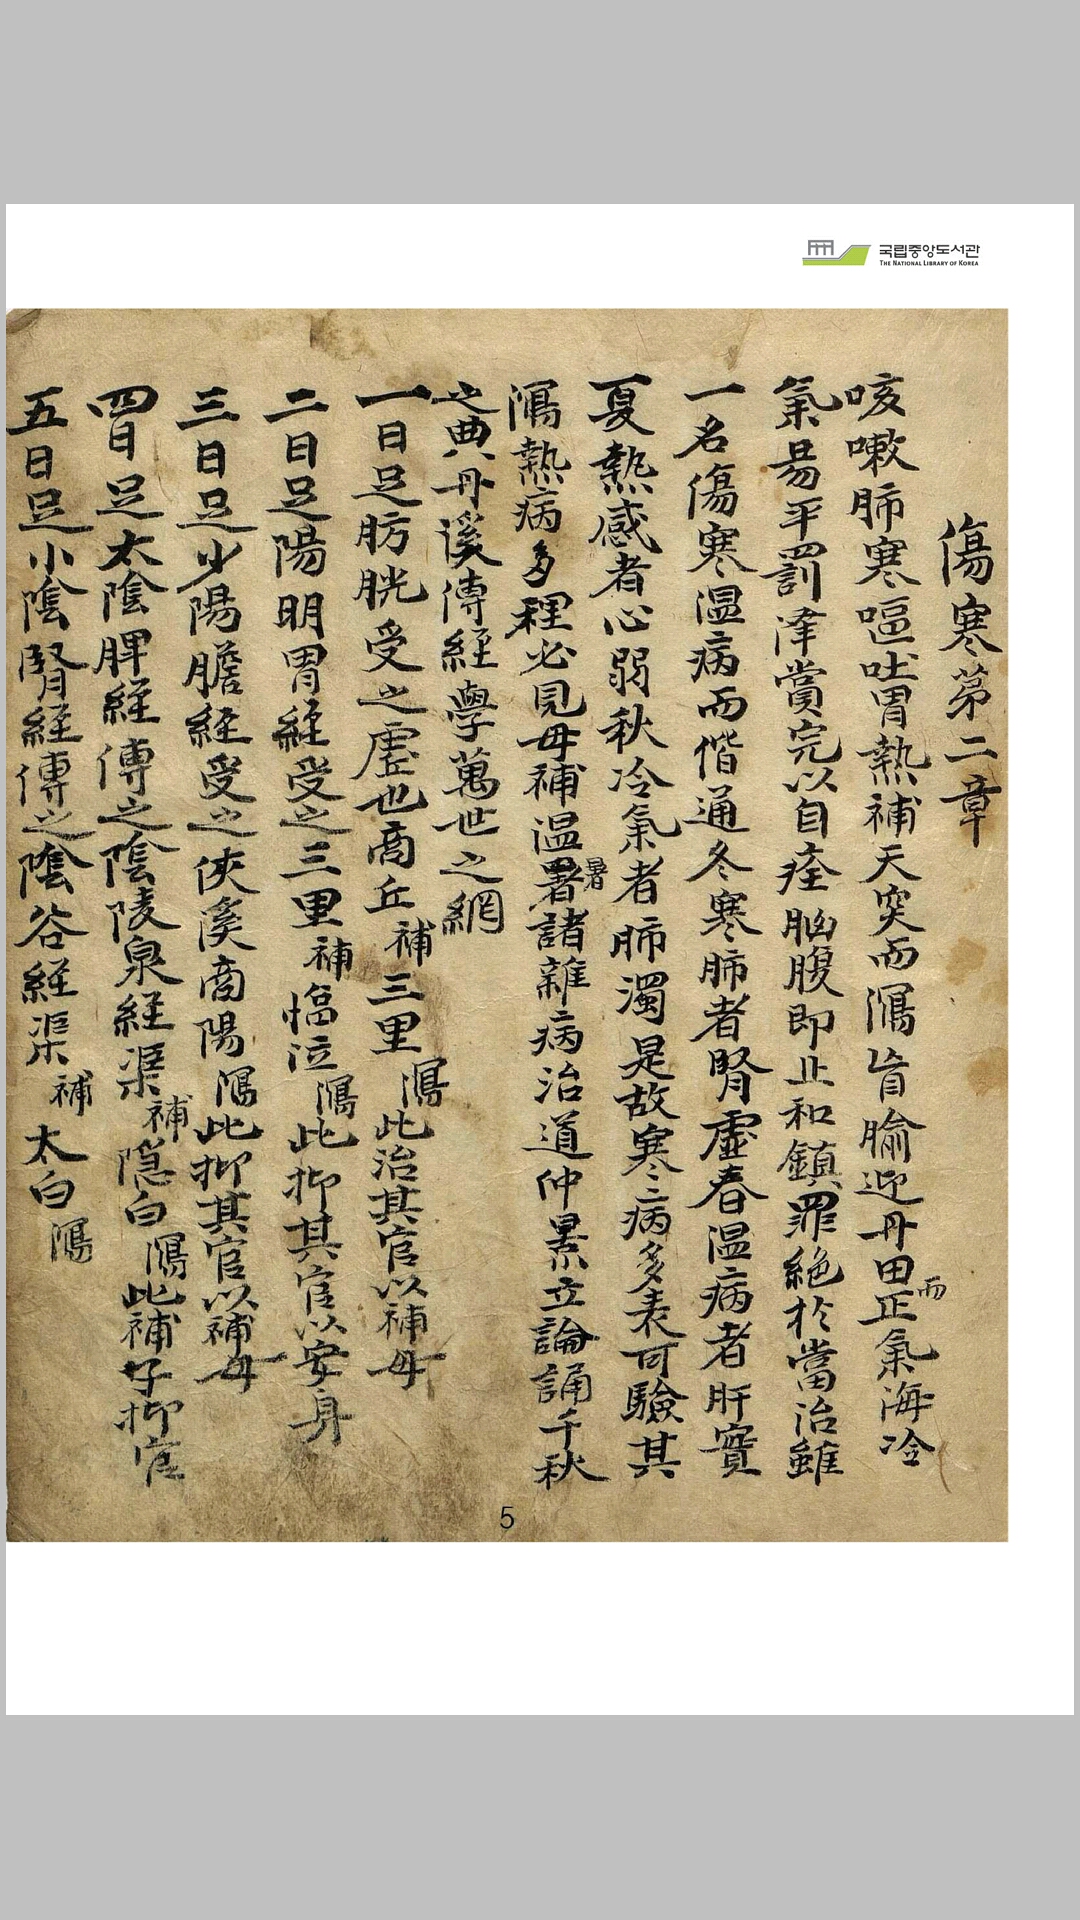 국립중앙도서관
THE NATIONAL LIBRARY OF KOREA
傷寒苐二章
咳嗽肺寒嘔吐胃熱補天突而㵼肓腧迎丹田而正氣海冷
氣昜平罰泽賞完以自痊胸腹即止和鎮罪絶扵當治雖
一名傷寒温病而偕通冬寒肺者腎虛春温病者肝實
夏熱感者心弱秋冷氣者肺濁是故寒病多表可驗其
㵼熱病多裡必見毋補温暑暑諸雜病治道仲景立論誦千秋
之典丹溪傳經學萬世之網
一日足肪胱受之虛也商丘補三里㵼此治其官以補母
二日足陽明胃經受之三里補㵼此抑其官以安身
三日足少陽膽經受之俠溪商陽㵼此抑其官以補母
四日足太陰脾經傳之陰陵泉經渠補隐白㵼此補子抑官
五日足小陰腎經傳之陰谷經渠補太白㵼
5